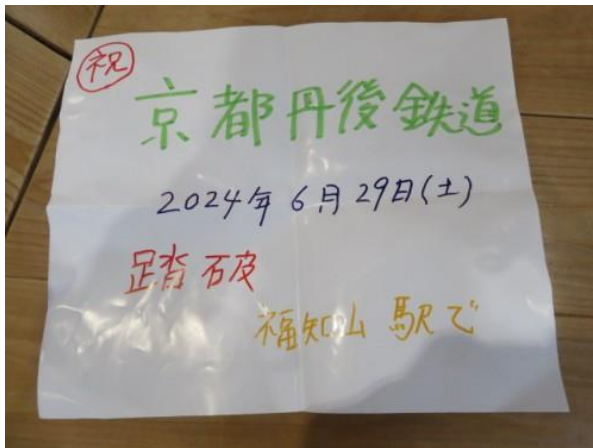 祝
京都丹後鉄道
2024年6月29日(土)
踏破
福知山駅で